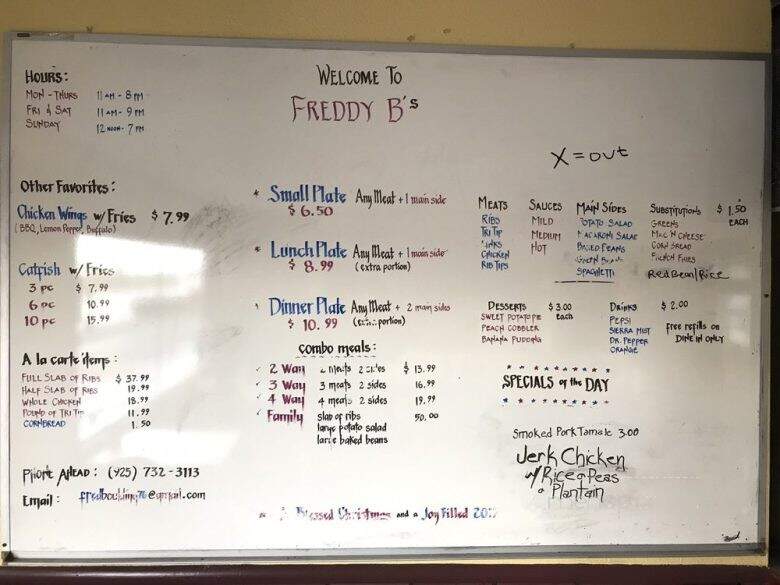 WELCOME TO
FREDDY B's
HOURS:
MON - THURS 11 AM - 8 PM
FRI & SAT 11 AM - 9 PM
SUNDAY 12 NOON - 7 PM
X = out
Other Favorites:
Chicken Wings w/ Fries $ 7.99
(BBQ, Lemon Pepper, Buffalo)
Catfish w/ Fries
3 pc $ 7.99
6 pc 10.99
10 pc 15.99
A la carte items:
FULL SLAB OF RIBS $ 37.99
HALF SLAB OF RIBS 19.99
WHOLE CHICKEN 18.99
POUND OF TRI TIP 11.99
CORNBREAD 1.50
PHONE AHEAD: (925) 732-3113
Email: @gmail.com
* Small Plate Any Meat + 1 main side
$ 6.50
* Lunch Plate Any Meat + 1 main side
$ 8.99 (extra portion)
* Dinner Plate Any Meat + 2 main sides
$ 10.99 (extra portion)
combo meals:
✓ 2 Way 2 meats 2 sides $ 13.99
✓ 3 Way 3 meats 2 sides 16.99
✓ 4 Way 4 meats 2 sides 19.99
✓ Family slab of ribs 50.00
large potato salad
large baked beans
Blessed Christmas and a Joy Filled
MEATS
RIBS
TRI TIP
LINKS
CHICKEN
RIB TIPS
SAUCES
MILD
MEDIUM
HOT
MAIN SIDES
POTATO SALAD
MACARONI SALAD
BAKED BEANS
GREEN
SPAGHETTI
SUBSTITUTIONS $ 1.50
EACH
GREENS
MAC N CHEESE
CORN BREAD
FRENCH FRIES
Red Bean/Rice
DESSERTS $ 3.00
each
SWEET POTATO PIE
PEACH COBBLER
BANANA PUDDING
DRINKS $ 2.00
PEPSI
SIERRA MIST
DR. PEPPER
ORANGE
free refills on
DINE IN ONLY
SPECIALS of the DAY
Smoked Pork Tamale 3.00
Jerk Chicken
w/ Rice & Peas
& Plantain